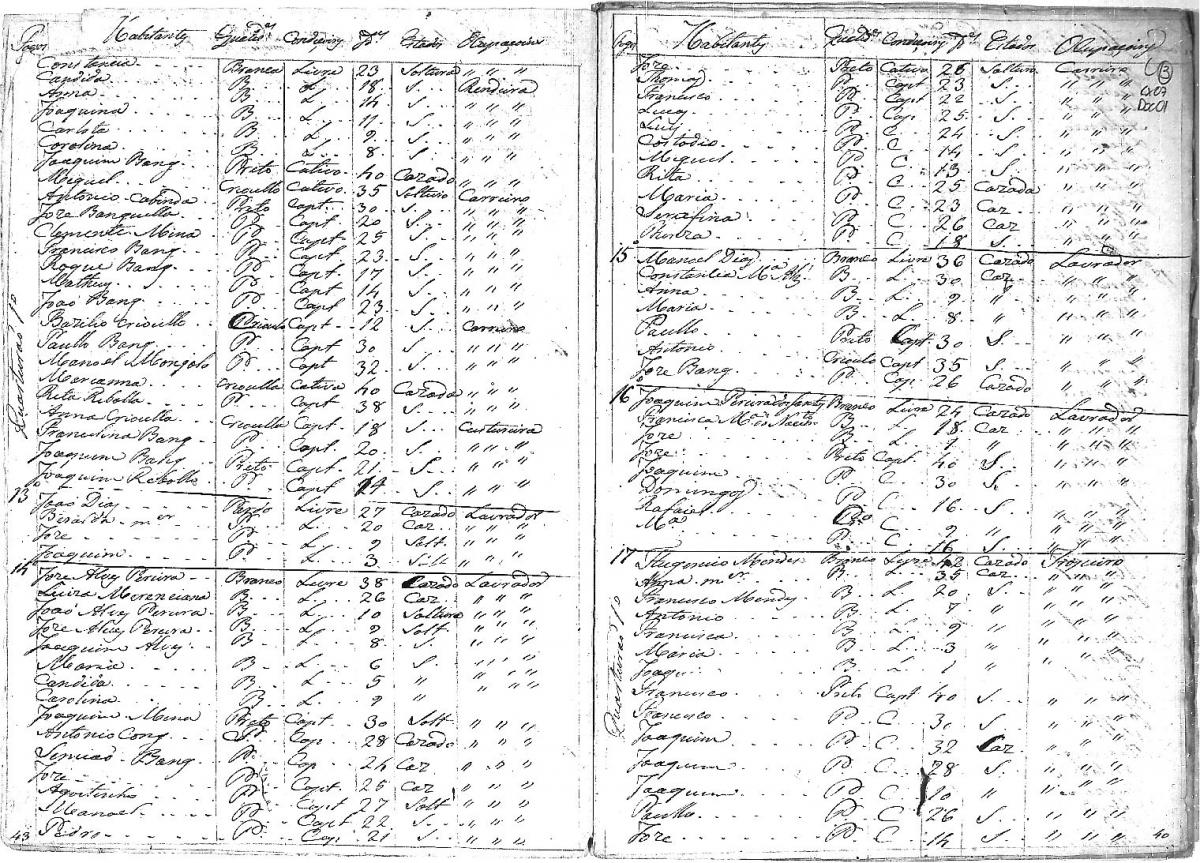 Fogos Habitantes Qualid.es Condições Id.es Estados Ocupações
Constancia Branca Livre 23 Solteira " " "
Candida B. L. 18 S. Rendeira
Anna B. L. 14 S. " " "
Joaquina B. L. 11 S. " " "
Carlota B. L. 9 S. " " "
Carolina B. L. 8 S. " " "
Joaquim Bang. Preto Cativo 40 Cazado " " "
Miguel Crioullo Cativo 35 Solteiro Carreiro
Antonio Cabinda Preto Capt. 30 S. " " "
Joze Banguella P. Capt 20 S. " " "
Clemente Mina P. Capt 25 S. " " "
Francisco Bang P. Capt 23 S. " " "
Roque Bang. P. Capt 17 S. " " "
Matheus P. Capt 14 S. " " "
Joaõ Bang P. Capt 23 S. " " "
Bazilio Crioullo Crioulo Capt 12 S. Carreiro
Paullo Bang P. Capt 30 S. " " "
Manoel Mongolo P. Capt 32 S. " " "
Marianna Crioulla Cativa 40 Cazada " " "
Rita Ribolla P. Capt 38 S. " " "
Anna Crioulla Crioulla Capt 18 S. Custureira
Franculina Bang P. Capt. 20 S. " " "
Joaquim Bang Preto Capt. 21 S. " " "
Joaquim Rebollo P. Capt 14 S. " " "
13 Joaõ Dias Pardo Livre 27 Cazado Lavrador
m.er P. L. 20 Caz " " "
Joze P. L. 9 Solt " " "
Joaquim P. L. 3 Solt " "
14 Joze Alves Pereira Branco Livre 38 Cazado Lavrador
Luiza Merenciana B. L. 26 Caz " " "
Joaõ Alves Pereira B. L. 10 Solteiro " " "
Joze Alves Pereira B. L. 9 Solt. " " "
Joaquim Alves B. L. 8 S. " " "
Maria B. L. 6 S. " " "
Candida B. L. 5 " " " "
Carolina B. L. 2 " " " "
Joaquim Mina Preto Capt 30 Solt " " "
Antonio Cong. P. Cap 28 Cazado " " "
Simiaõ Bang P. Cap 24 Caz " " "
Joze P. Capt 25 Caz " " "
Agostinho P. Capt 27 Solt " " "
Manoel P. Capt 22 S. " " "
43 Pedro P. Cap. 21 S. " " "
Quarteiraõ 1º
Fogos Habitantes Qualid.es Condições Id.es Estados Ocupações
Joze Preto Cativo 28 Solteiro Carreiro
Thomas P. Capt 23 S. " " "
Francisco P. Capt 22 S. " " "
Lucas P. Cap. 25 S. " " "
Luis P. C. 24 S. " " "
Custodio P. C. 14 S. " " "
Miguel P. C. 13 S. " " "
Rita P. C. 25 Cazada " " "
Maria P. C. 23 Caz " " "
Serafina P. C. 26 Caz " " "
Thereza P. C. 18 S. " " "
15 Manoel Dias Branco Livre 36 Cazado Lavrador
Constancia M.a B. L. 30 Caz " " "
Anna B. L. 9 " " " "
Maria B. L. 8 " " " "
Paullo Preto Capt 30 S. " " "
Antonio Crioulo Capt 35 S. " " "
Joze Bang P. Cap. 26 Cazado " " "
16 Joaquim Pereira dos Santos Branco Livre 24 Cazado Lavrador
Francisca M.a B. L. 18 Caz " " "
Joze B. L. 1 " " " "
Joze Preto Capt 40 S. " " "
Joaquim P. C. 30 S. " " "
Domingos P. C. 16 S. " " "
Rafael P. C. 9 " " " "
M.a P. C. 16 S. " " "
17 Mendes Branco Livre 42 Cazado Tropeiro
Anna m.er B. L. 35 Caz " " "
Francisco Mendes B. L. 20 S. " " "
Antonio B. L. 7 " " " "
Francisca B. L. 9 " " " "
Maria B. L. 3 " " " "
Joaqu. B. L. 1 " " " "
Francisco Preto Capt 40 S. " " "
Francisco P. C. 30 S. " " "
Joaquim P. C. 32 Caz " " "
Joaquim P. C. 28 S. " " "
Joaquim P. C. 10 " " " "
Paullo P. C. 26 S. " " "
Joze P. C. 14 S. " " " 40
Quarteiraõ 1º
3
Cx 07
Doc 01